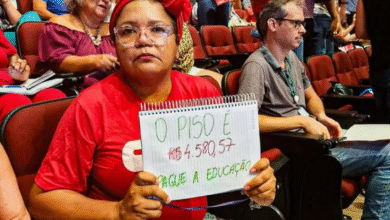 O PISO É
R$ 4.580,57
PAGUE A EDUCAÇÃO